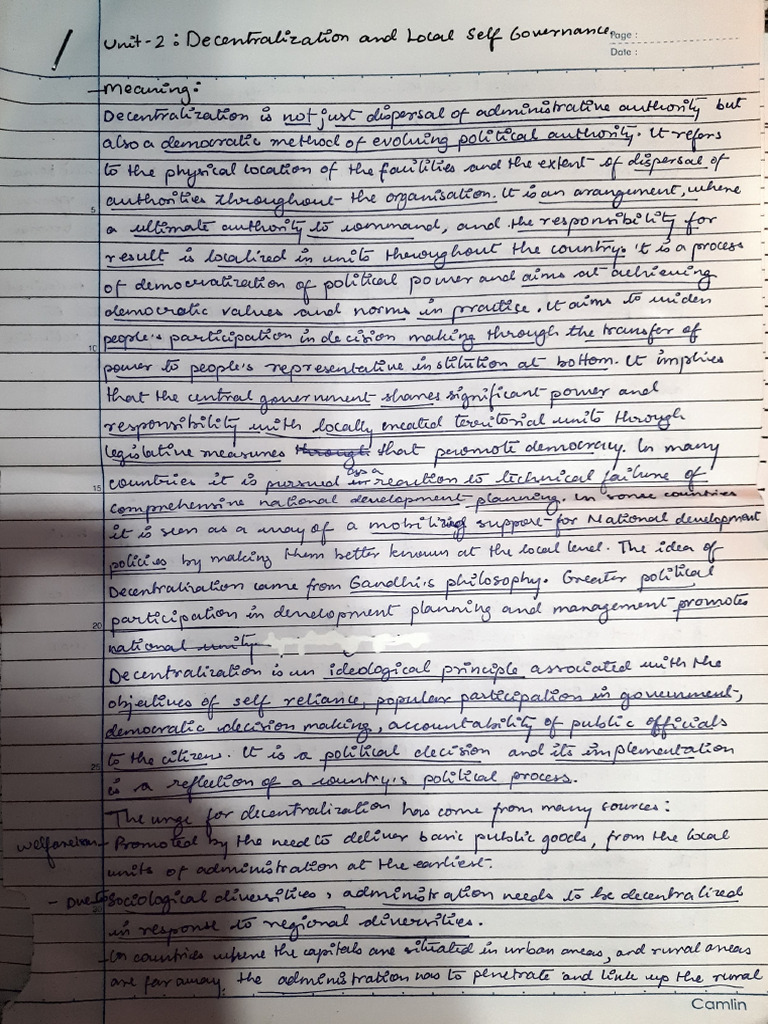 1
Unit-2 : Decentralization and Local Self Governance.
Page :
Date :
- Meaning :
Decentralization is not just dispersal of administrative authority but
also a democratic method of evolving political authority. It refers
to the physical location of the facilities and the extent of dispersal of
authorities throughout the organisation. It is an arangement, where
5
a ultimate authority to command, and the responsibility for
result is localized in units throughout the country. it is a process
of democratization of political power and aims at achieving
democratic values and norms in practise. It aims to widen
people's participation in decision making through the transfer of
10
power to people's representative institution at bottom. It implies
that the central government shares significant power and
responsibility with locally created territorial units through
legislative measures through that peromote democracy. In many
as a
countries it is pursued in reaction to technical failure of
15
comprehensive national development planning. In some countries
it is seen as a way of a mobilizing support for National development
policies by making them better known at the local level. The idea of
Decentralization came from Gandhi's philosophy. Greater political
participation in development planning and management promotes
20
national unity
Decentralization is an ideological principle associated with the
objectives of self reliance, popular participation in government,
democratic decision making, accountability of public officials
to the citizens. It is a political decision and its implementation
25
is a reflection of a country's political process.
The urge for decentralization has come from many sources :
- Promoted by the need to deliver basic public goods, from the local
units of administration at the earliest.
- Due to sociological diversities, administration needs to be decentralized
in response to regional diversities.
- In countries where the capitals are situated in urban areas, and rural areas
are far away, the administration has to penetrate and link up the rural
Camlin